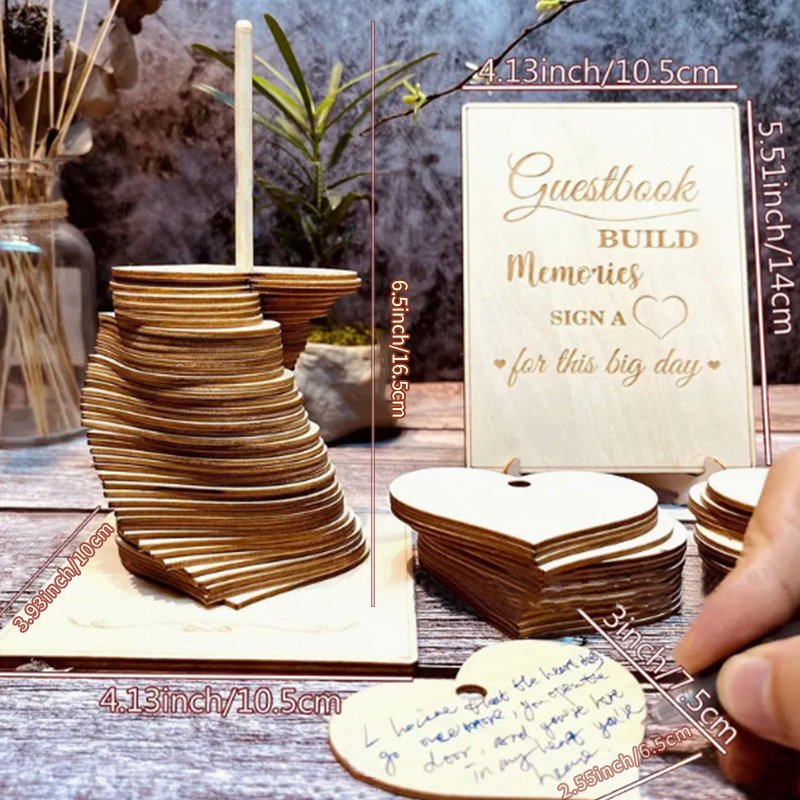 4.13inch/10.5cm
5.51inch/14cm
Guestbook
BUILD
Memories
SIGN A
for this big day
6.5inch/16.5cm
3.93inch/10cm
4.13inch/10.5cm
3inch/7.5cm
2.55inch/6.5cm
the heart
go, you open the
door, and you're love
in my heart you're